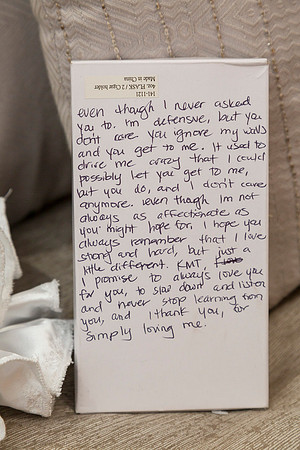 141-1121
4oz. FLASK / 2 Cigar holder
Made in China
even though I never asked
you to. I'm defensive, but you
don't care you ignore my walls
and you get to me. It used to
drive me crazy that I could
possibly let you get to me,
but you do, and I don't care
anymore. Even though Im not
always as affectionate as
you might hope for, I hope you
always remember that I love
strong and hard, but just a
little different. KMT,
I promise to always love you
for you, to slow down and listen
and never stop learning from
you, and I thank you, for
simply loving me.